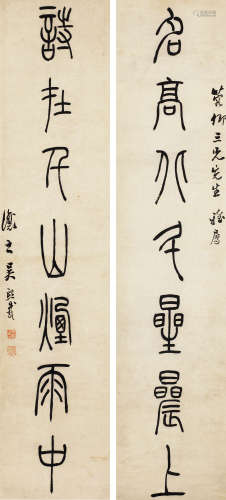 三兄先生
名高北斗星辰上
詩在千山煙雨中
讓之吳熙載